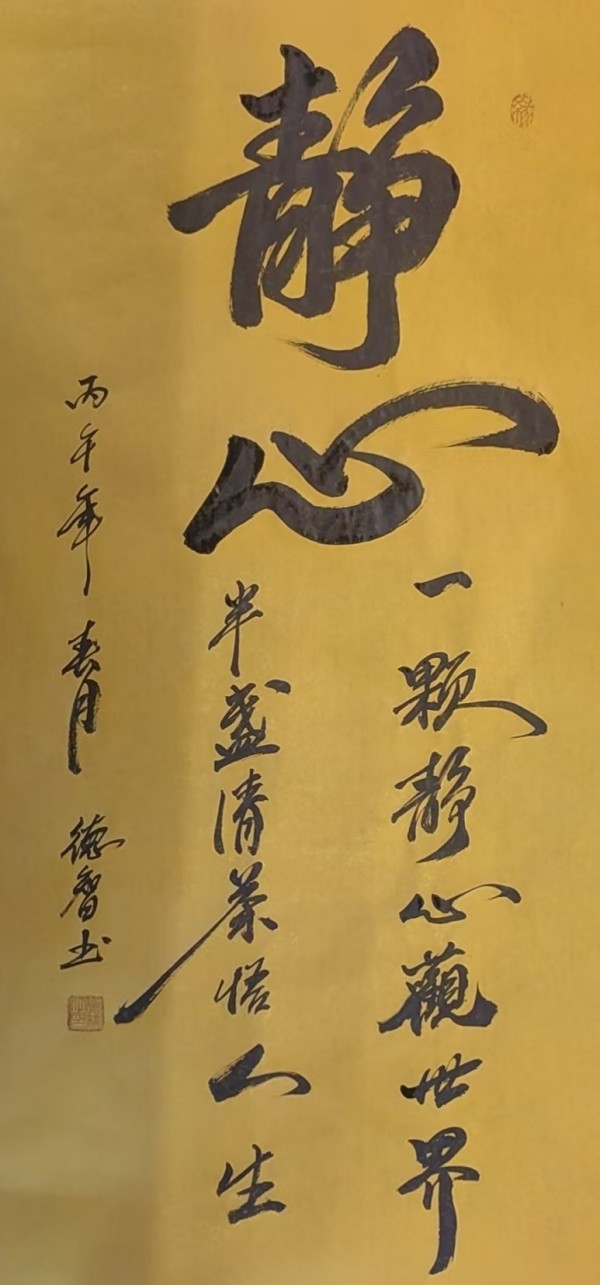 静心
一颗静心觀世界
半盏清茶悟人生
丙午年 春月 德智书